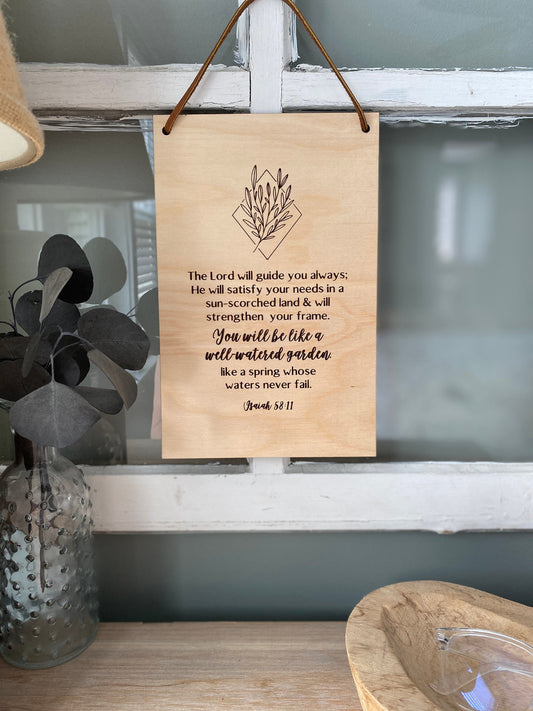 The Lord will guide you always;
He will satisfy your needs in a
sun-scorched land & will
strengthen your frame.
You will be like a
well-watered garden,
like a spring whose
waters never fail.
Isaiah 58:11